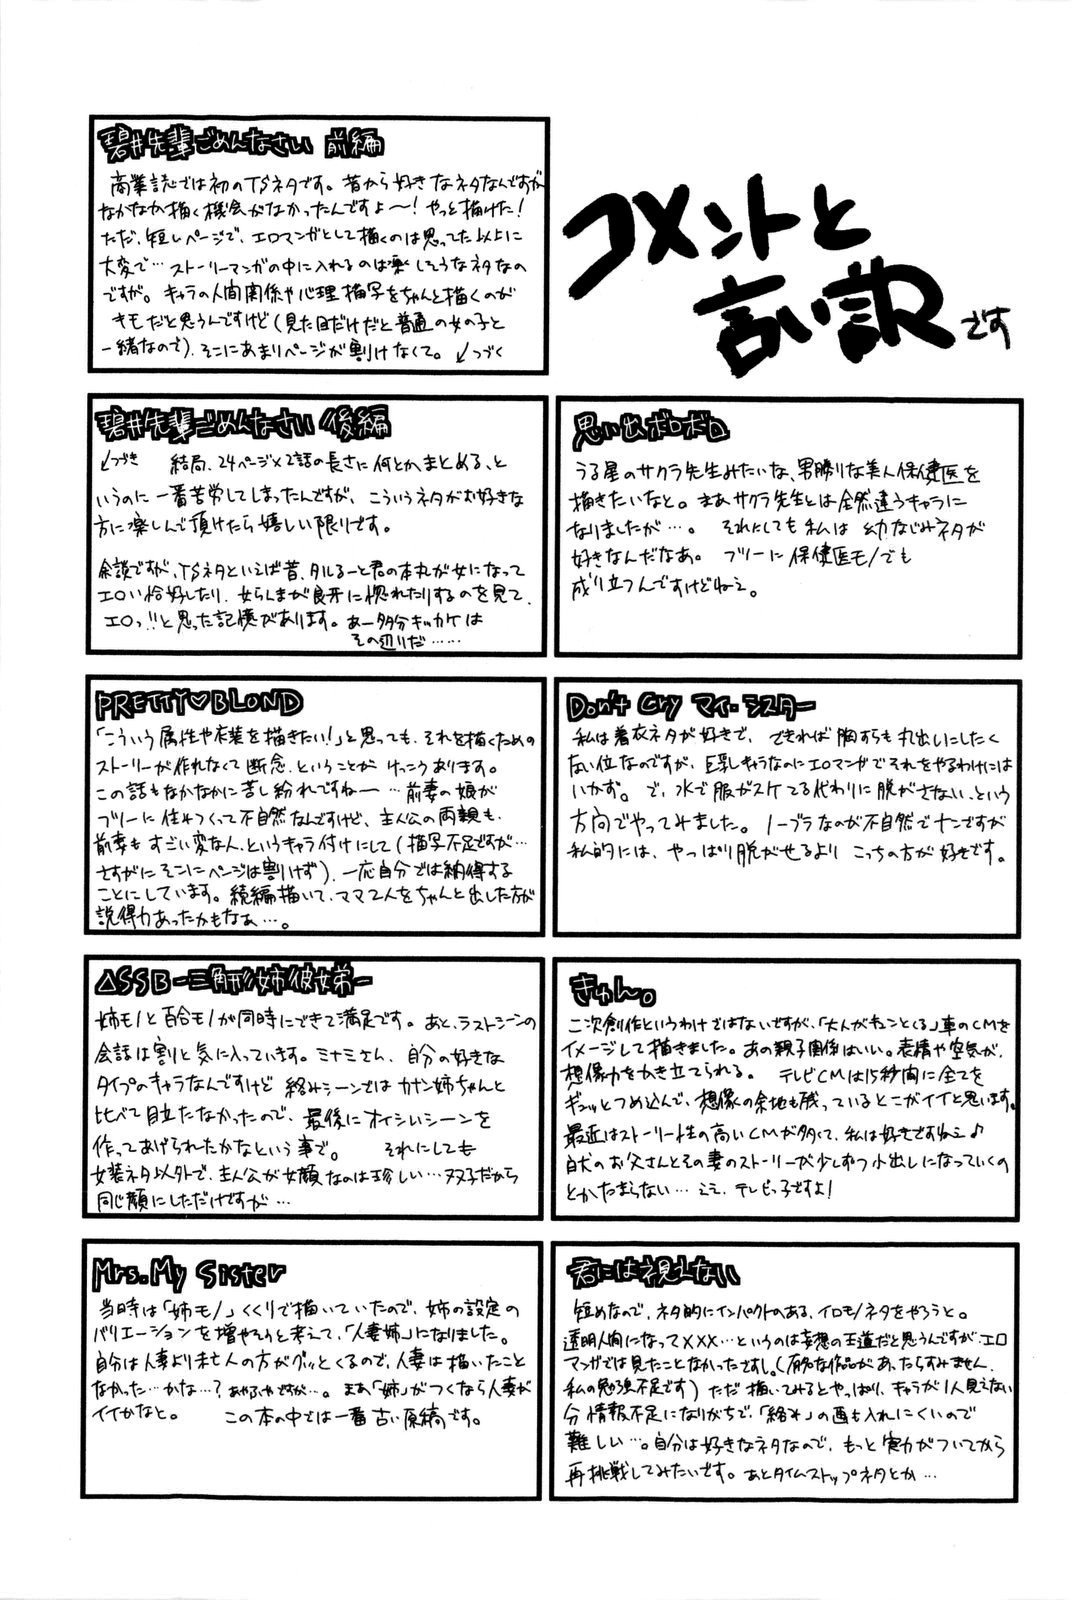 コメントと
言い訳です
碧井先輩ごめんなさい 前編
商業誌では初のTSネタです。昔から好きなネタなんですが
なかなか描く機会がなかったんですよ〜!やっと描けた!
ただ、短いページで、エロマンガとして描くのは思ってた以上に
大変で…ストーリーマンガの中に入れるのは楽しそうなネタなの
ですが。キャラの人間関係や心理描写をちゃんと描くのが
キモだと思うんですけど(見た目だけだと普通の女の子と
一緒なので)、そこにあまりページが割けなくて。↙つづく
碧井先輩ごめんなさい 後編
↙つづき 結局、24ページ×2話の長さに何とかまとめる、と
いうのに一番苦労してしまったんですが、こういうネタがお好きな
方に楽しんで頂けたら嬉しい限りです。
余談ですが、TSネタといえば昔、タルるート君の本丸が女になって
エロい恰好したり、女らんまが良牙に惚れたりするのを見て、
エロッ!!と思った記憶があります。あー多分キッカケは
その辺りだ……
思い出ボロボロ
うる星のサクラ先生みたいな、男勝りな美人保健医を
描きたいなと。まあサクラ先生とは全然違うキャラに
なりましたが…。それにしても私は幼なじみネタが
好きなんだなあ。フツーに保健医モノでも
成り立つんですけどねぇ。
PRETTY♡BLOND
「こういう属性や衣装を描きたい!」と思っても、それを描くための
ストーリーが作れなくて断念、ということがけっこうあります。
この話もなかなかに苦し紛れですね〜…前妻の娘が
フツーに住みつくって不自然なんですけど、主人公の両親も、
前妻もすごい変な人、というキャラ付けにして(描写不足ですが…
さすがにそこにページは割けず)、一応自分では納得する
ことにしています。続編描いて、ママ2人をちゃんと出した方が
説得力あったかもなぁ…。
Don't Cry マイ・シスター
私は着衣ネタが好きで、できれば胸すらも丸出しにしたく
ない位なのですが、巨乳キャラなのにエロマンガでそれをやるわけには
いかず。で、水で服がスケてる代わりに脱がさない、という
方向でやってみました。ノーブラなのが不自然でナンですが
私的には、やっぱり脱がせるよりこっちの方が好きです。
△SSB-三角形姉彼弟-
姉モノと百合モノが同時にできて満足です。あと、ラストシーンの
会話は割と気に入っています。ミナミさん、自分の好きな
タイプのキャラなんですけど絡みシーンではカナン姉ちゃんと
比べて目立たなかったので、最後にオイシいシーンを
作ってあげられたかなという事で。それにしても
女装ネタ以外で、主人公が女顔なのは珍しい…双子だから
同じ顔にしただけですが…
きゅん。
二次創作というわけではないですが、「大人がキュンとくる」車のCMを
イメージして描きました。あの親子関係はいい。表情や空気が、
想像力をかき立てられる。テレビCMは15秒間に全てを
ギュッとつめ込んで、想像の余地も残っているとこがイイと思います。
最近はストーリー性の高いCMが多くて、私は好きですねぇ♪
白犬のお父さんとその妻のストーリーが少しずつ小出しになっていくの
とかたまらない…ええ、テレビっ子ですよ!
Mrs. My Sister
当時は「姉モノ」くくりで描いていたので、姉の設定の
バリエーションを増やそうと考えて、「人妻姉」になりました。
自分は人妻より未亡人の方がグッとくるので、人妻は描いたこと
なかった…かな…?あやふやですが…。まあ「姉」がつくなら人妻が
イイかなと。この本の中では一番古い原稿です。
君には視えない
短めなので、ネタ的にインパクトのある、イロモノネタをやろうと。
透明人間になって×××…というのは妄想の王道だと思うんですが、エロ
マンガでは見たことなかったですし。(有名な作品があったらすみません、
私の勉強不足です)ただ描いてみるとやっぱり、キャラが1人見えない
分情報不足になりがちで、「絡み」の画も入れにくいので
難しい…。自分は好きなネタなので、もっと実力がついてから
再挑戦してみたいです。あとタイムストップネタとか…